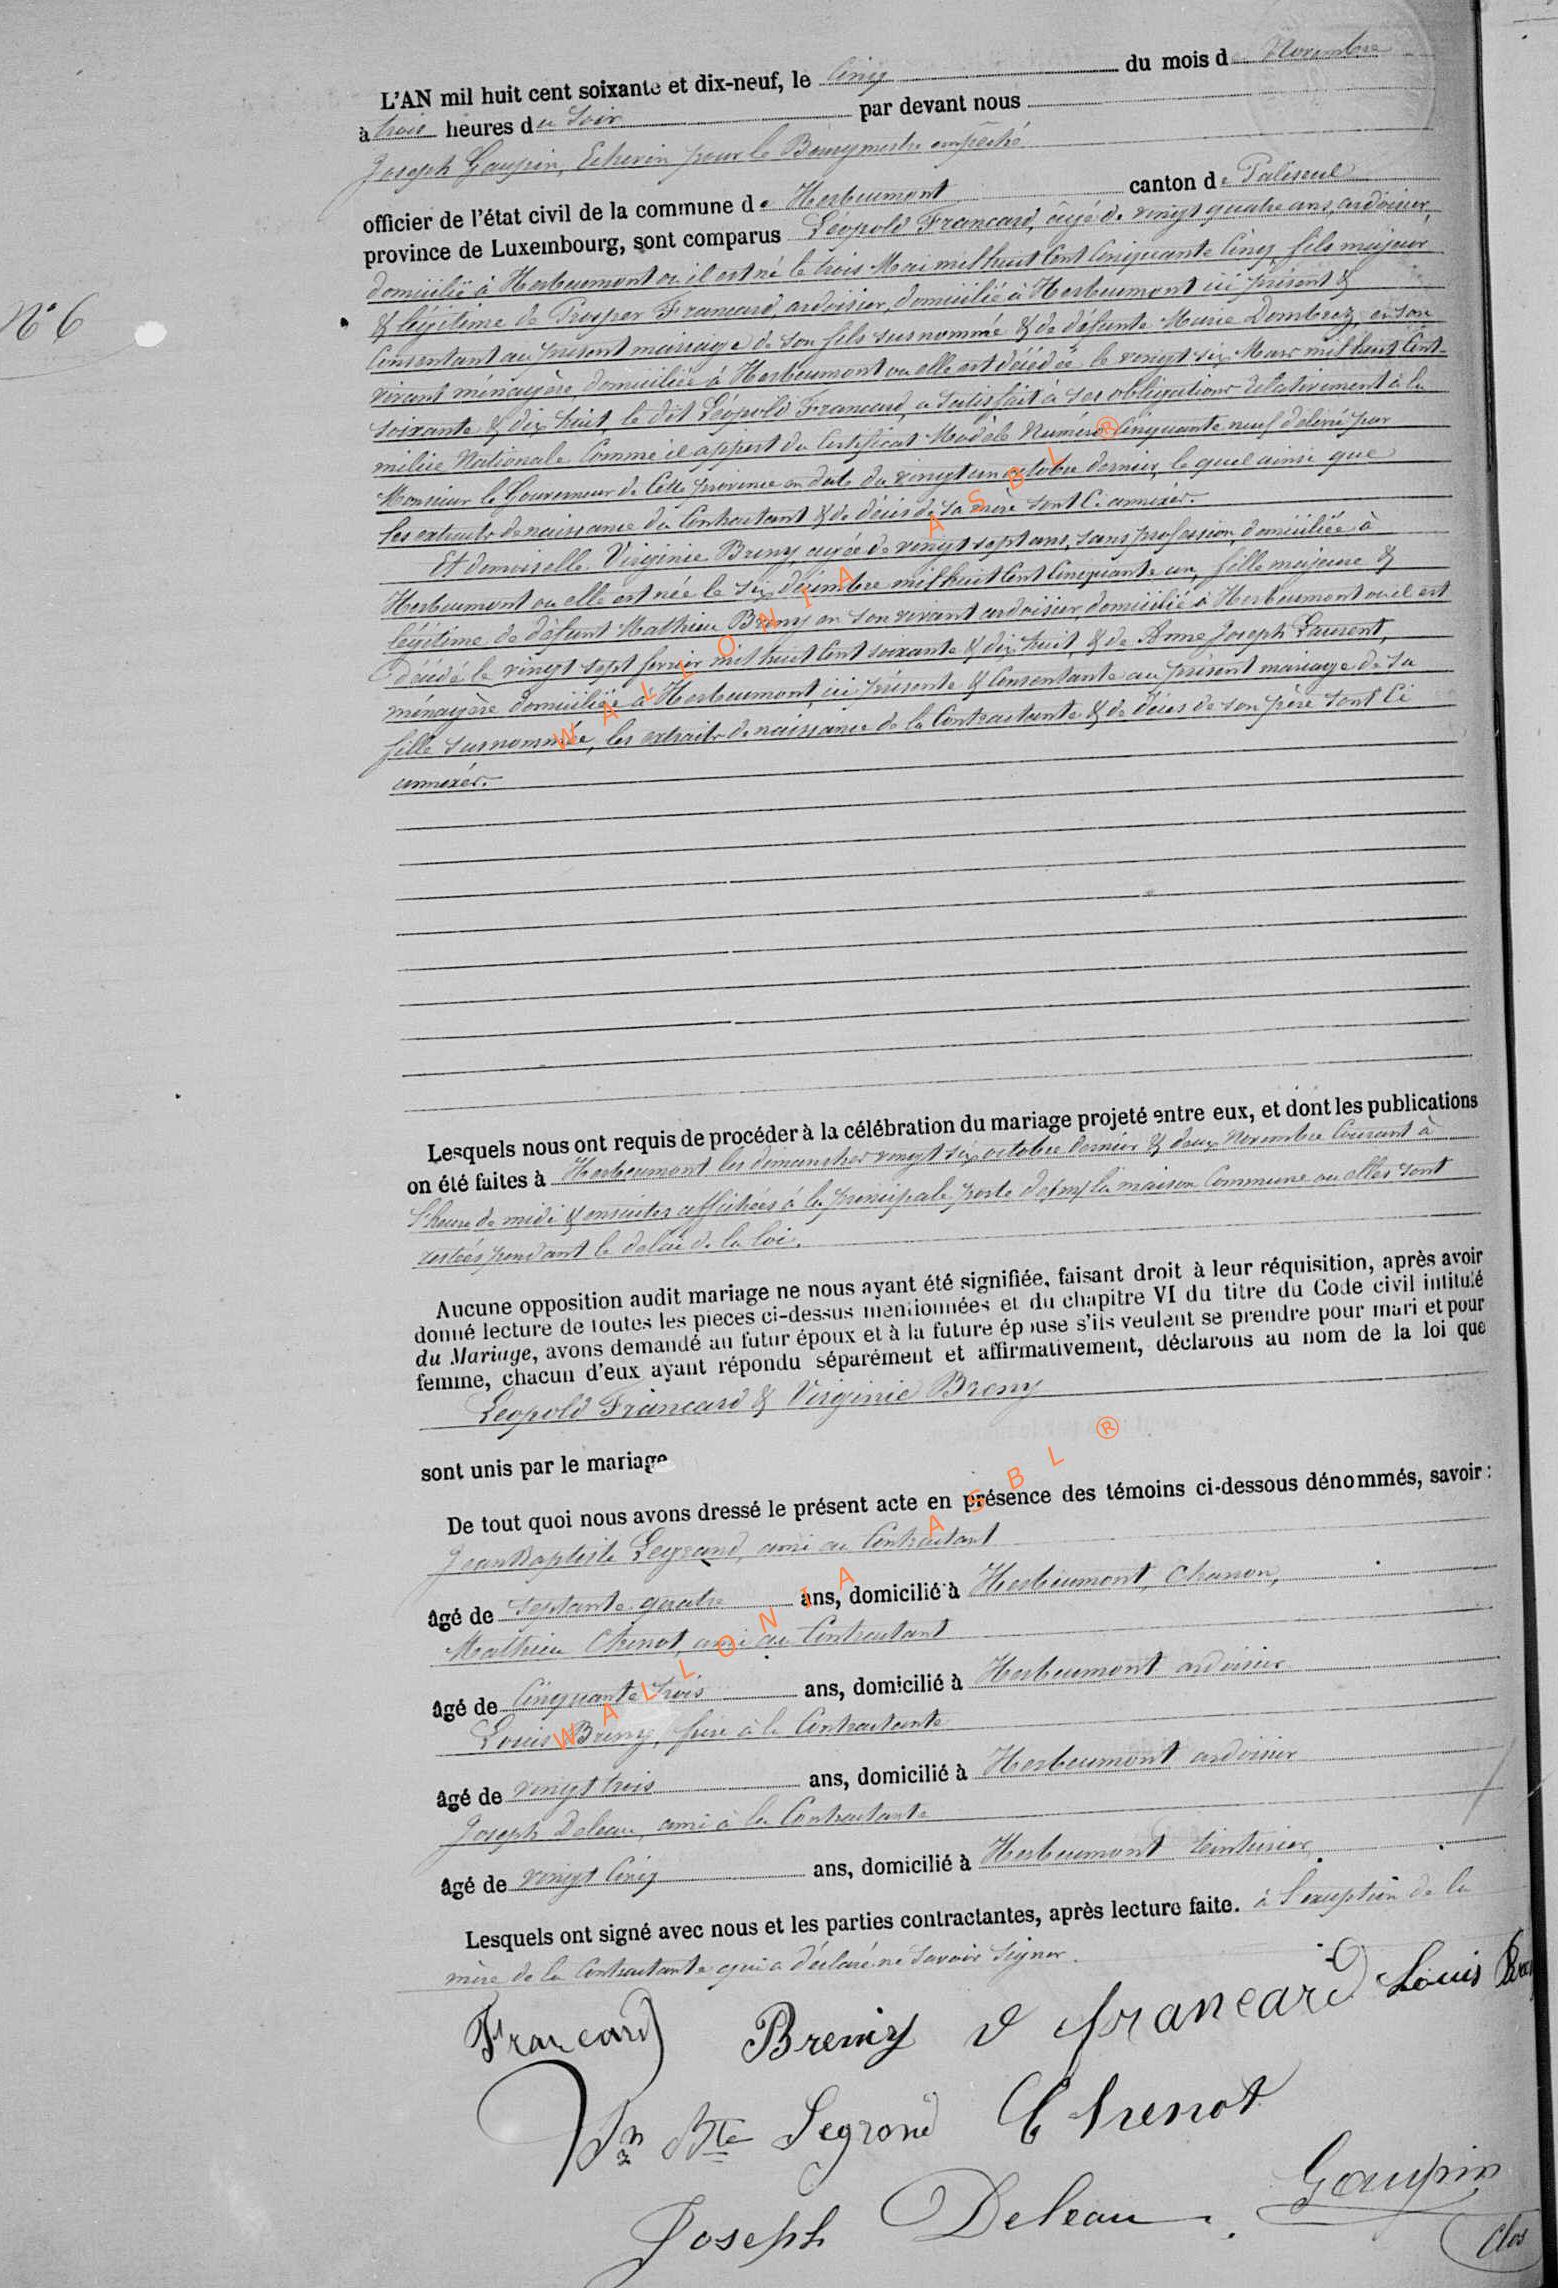 N° 6
L'AN mil huit cent soixante et dix-neuf, le Cinq du mois de Novembre
à trois heures du Soir par devant nous
Joseph Gaupin, Echevin pour le Bourgmestre empêché
officier de l'état civil de la commune de Herbeumont canton de Paliseul
province de Luxembourg, sont comparus Léopold Francard, âgé de vingt quatre ans, ardoisier,
domicilié à Herbeumont ou il est né le trois Mai mil huit Cent Cinquante Cinq, fils majeur
& légitime de Prosper Francard, ardoisier, domicilié à Herbeumont ici présent &
Consentant au présent mariage de son fils susnommé & de défunte Marie Dombrez, en son
vivant ménagère, domiciliée à Herbeumont ou elle est décédée le vingt six Mars mil huit Cent
soixante & dix huit, le dit Léopold Francard, a satisfait à ses obligations relativement à la
milice Nationale Comme il appert du Certificat Modèle Numéro Cinquante neuf délivré par
Monsieur le Gouverneur de Cette province en date du vingt un octobre dernier, le quel ainsi que
les extraits de naissance du Contractant & de décès de sa mère sont Ci annexés.
Et demoiselle Virginie Breny, âgée de vingt sept ans, sans profession, domiciliée à
Herbeumont ou elle est née le six décembre mil huit Cent Cinquante un, fille majeure &
légitime de défunt Mathieu Breny en son vivant ardoisier, domicilié à Herbeumont ou il est
décédé le vingt sept février mil huit Cent soixante & dix huit, & de Anne Joseph Laurent,
ménagère domiciliée à Herbeumont, ici présente & Consentante au présent mariage de sa
fille susnommée, les extraits de naissance de la Contractante & de décès de son père sont Ci
annexés.
Lesquels nous ont requis de procéder à la célébration du mariage projeté entre eux, et dont les publications
on été faites à Herbeumont les dimanches vingt six octobre dernier & deux Novembre Courant à
l'heure de midi & ensuites affichées à la principale porte de la maison Commune ou elles sont
restées pendant le délai de la loi.
Aucune opposition audit mariage ne nous ayant été signifiée, faisant droit à leur réquisition, après avoir
donné lecture de toutes les pièces ci-dessus mentionnées et du chapitre VI du titre du Code civil intitulé
du Mariage, avons demandé au futur époux et à la future épouse s'ils veulent se prendre pour mari et pour
femme, chacun d'eux ayant répondu séparément et affirmativement, déclarons au nom de la loi que
Léopold Francard & Virginie Breny
sont unis par le mariage
De tout quoi nous avons dressé le présent acte en présence des témoins ci-dessous dénommés, savoir :
Jean Baptiste Legrand, ami au Contractant
âgé de septante quatre ans, domicilié à Herbeumont, Charron,
Mathieu Chenot, ami au Contractant
âgé de Cinquante trois ans, domicilié à Herbeumont ardoisier
Louis Breny, frère à la Contractante
âgé de vingt trois ans, domicilié à Herbeumont ardoisier
Joseph Deleau, ami à la Contractante
âgé de vingt Cinq ans, domicilié à Herbeumont teinturier,
Lesquels ont signé avec nous et les parties contractantes, après lecture faite. à l'exception de la
mère de la Contractante qui a déclaré ne savoir signer.
Francard Breny V francard Louis
Jn Bte Legrand Chenot
Joseph Deleau. Gaupin
Clos
WALLONIA ASBL ®
WALLONIA ASBL ®